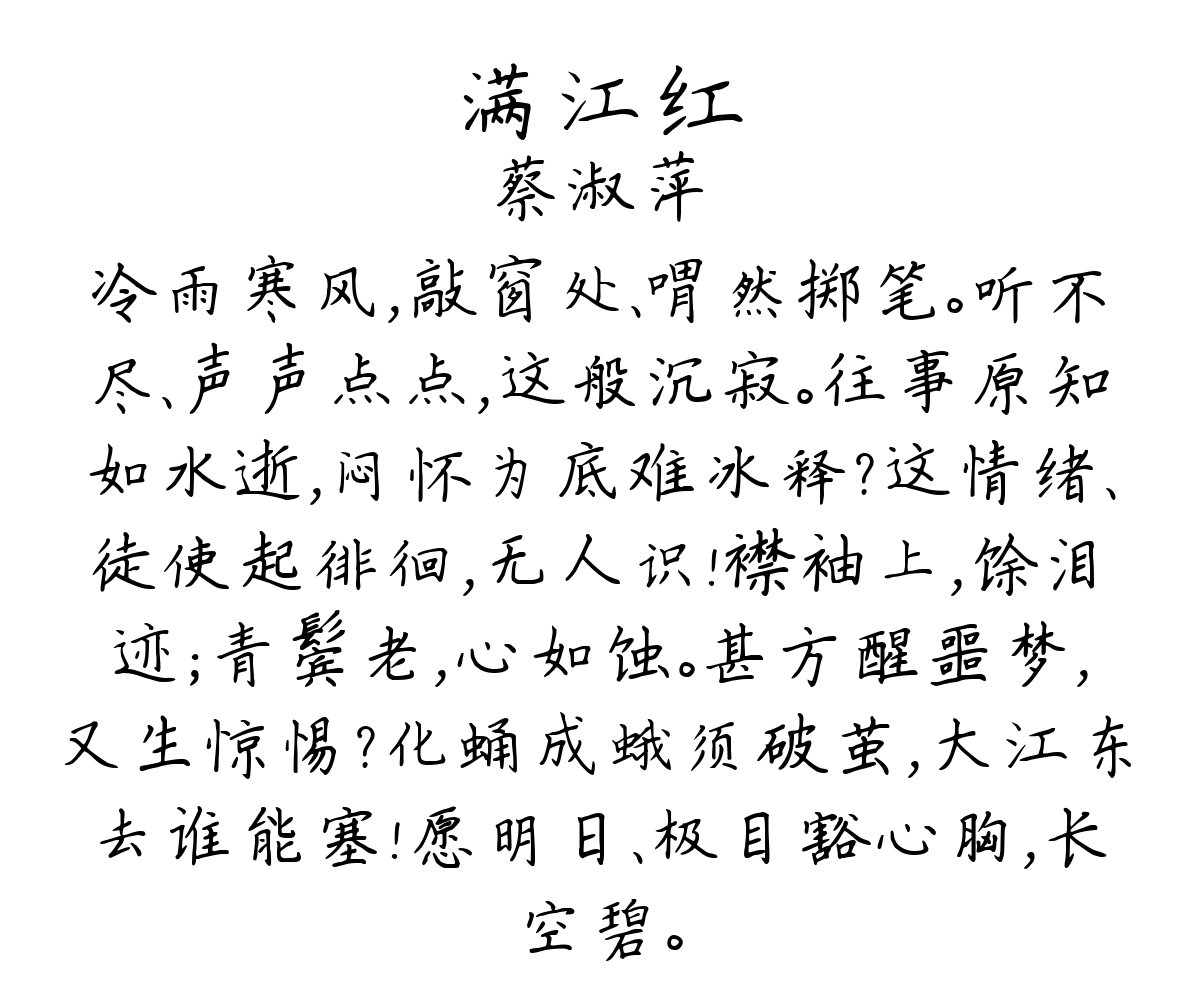 满江红
蔡淑萍
冷雨寒风,敲窗处、喟然掷笔。听不
尽、声声点点,这般沉寂。往事原知
如水逝,闷怀为底难冰释?这情绪、
徒使起徘徊,无人识!襟袖上,馀泪
迹;青鬓老,心如蚀。甚方醒噩梦,
又生惊惕?化蛹成蛾须破茧,大江东
去谁能塞!愿明日、极目豁心胸,长
空碧。